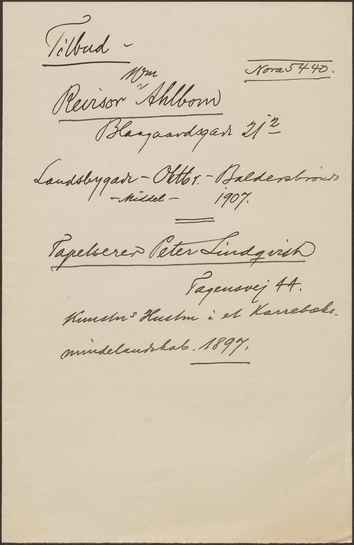 Tilbud -
Wm
Nora 5440.
Revisor Ahlbom
Blaagaardsgade 21²
Landsbygade - Oktbr. - Baldersbrönde
- Middel - 1907.
Tapetserer Peter Lindqvist
Tagensvej 44.
Kunstn's Hustru i et Karrebæks-
mindelandskab. 1897.